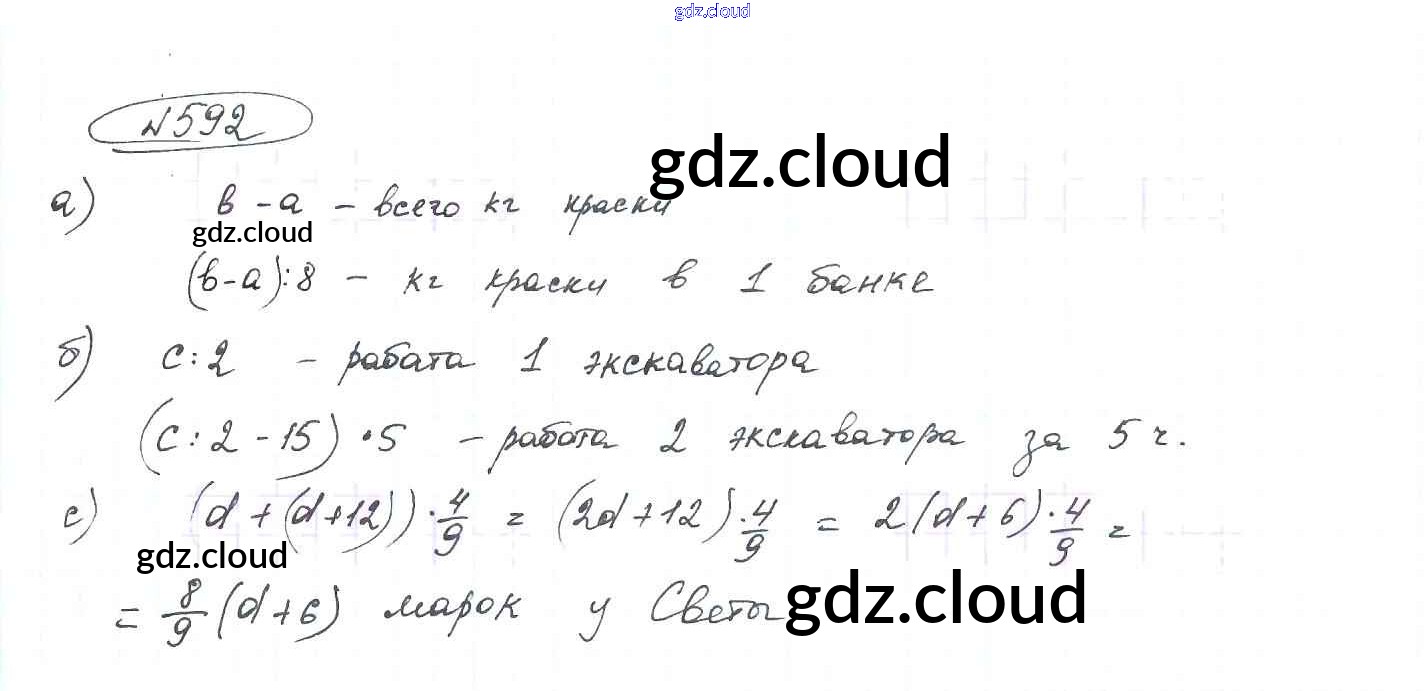 gdz.cloud
№592
gdz.cloud
а) в - а - всего кг краски
gdz.cloud
(в-а):8 - кг краски в 1 банке
б) с:2 - работа 1 экскаватора
(с:2 - 15) · 5 - работа 2 экскаватора за 5 ч.
с) (d + (d+12)) · 4/9 = (2d + 12) · 4/9 = 2(d + 6) · 4/9 =
gdz.cloud
= 8/9 (d+6) марок у Светы
gdz.cloud